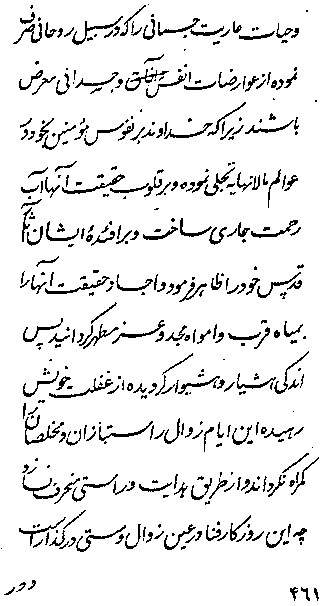 و حیات عاریت جسمانی را که در سبیل روحانی صرف
نموده از عوارضات انفس و آفاق و جدائی معرض
باشند زیرا که خداوند بر نفوس مؤمنین بخود در
عوالم مالانهایه تجلی نموده و بر قلوب حقیقت آنها آب
رحمت جاری ساخت و بر افئدهٔ ایشان آتش
قدس خود را ظاهر فرمود و اجساد حقیقت آنها را
بمیاه قرب و امواه مجد و عز مطهر گردانید پس
اندکی هشیار و هشیوار گردیده از غفلت خویش
رهیده این ایام زوال راستبازان و مخلصان را
گمراه نگرداند و از طریق هدایت و راستی منحرف نسازد
چه این روزگار فنا در عین زوال و سستی در گذار است
و در
۴۶۱